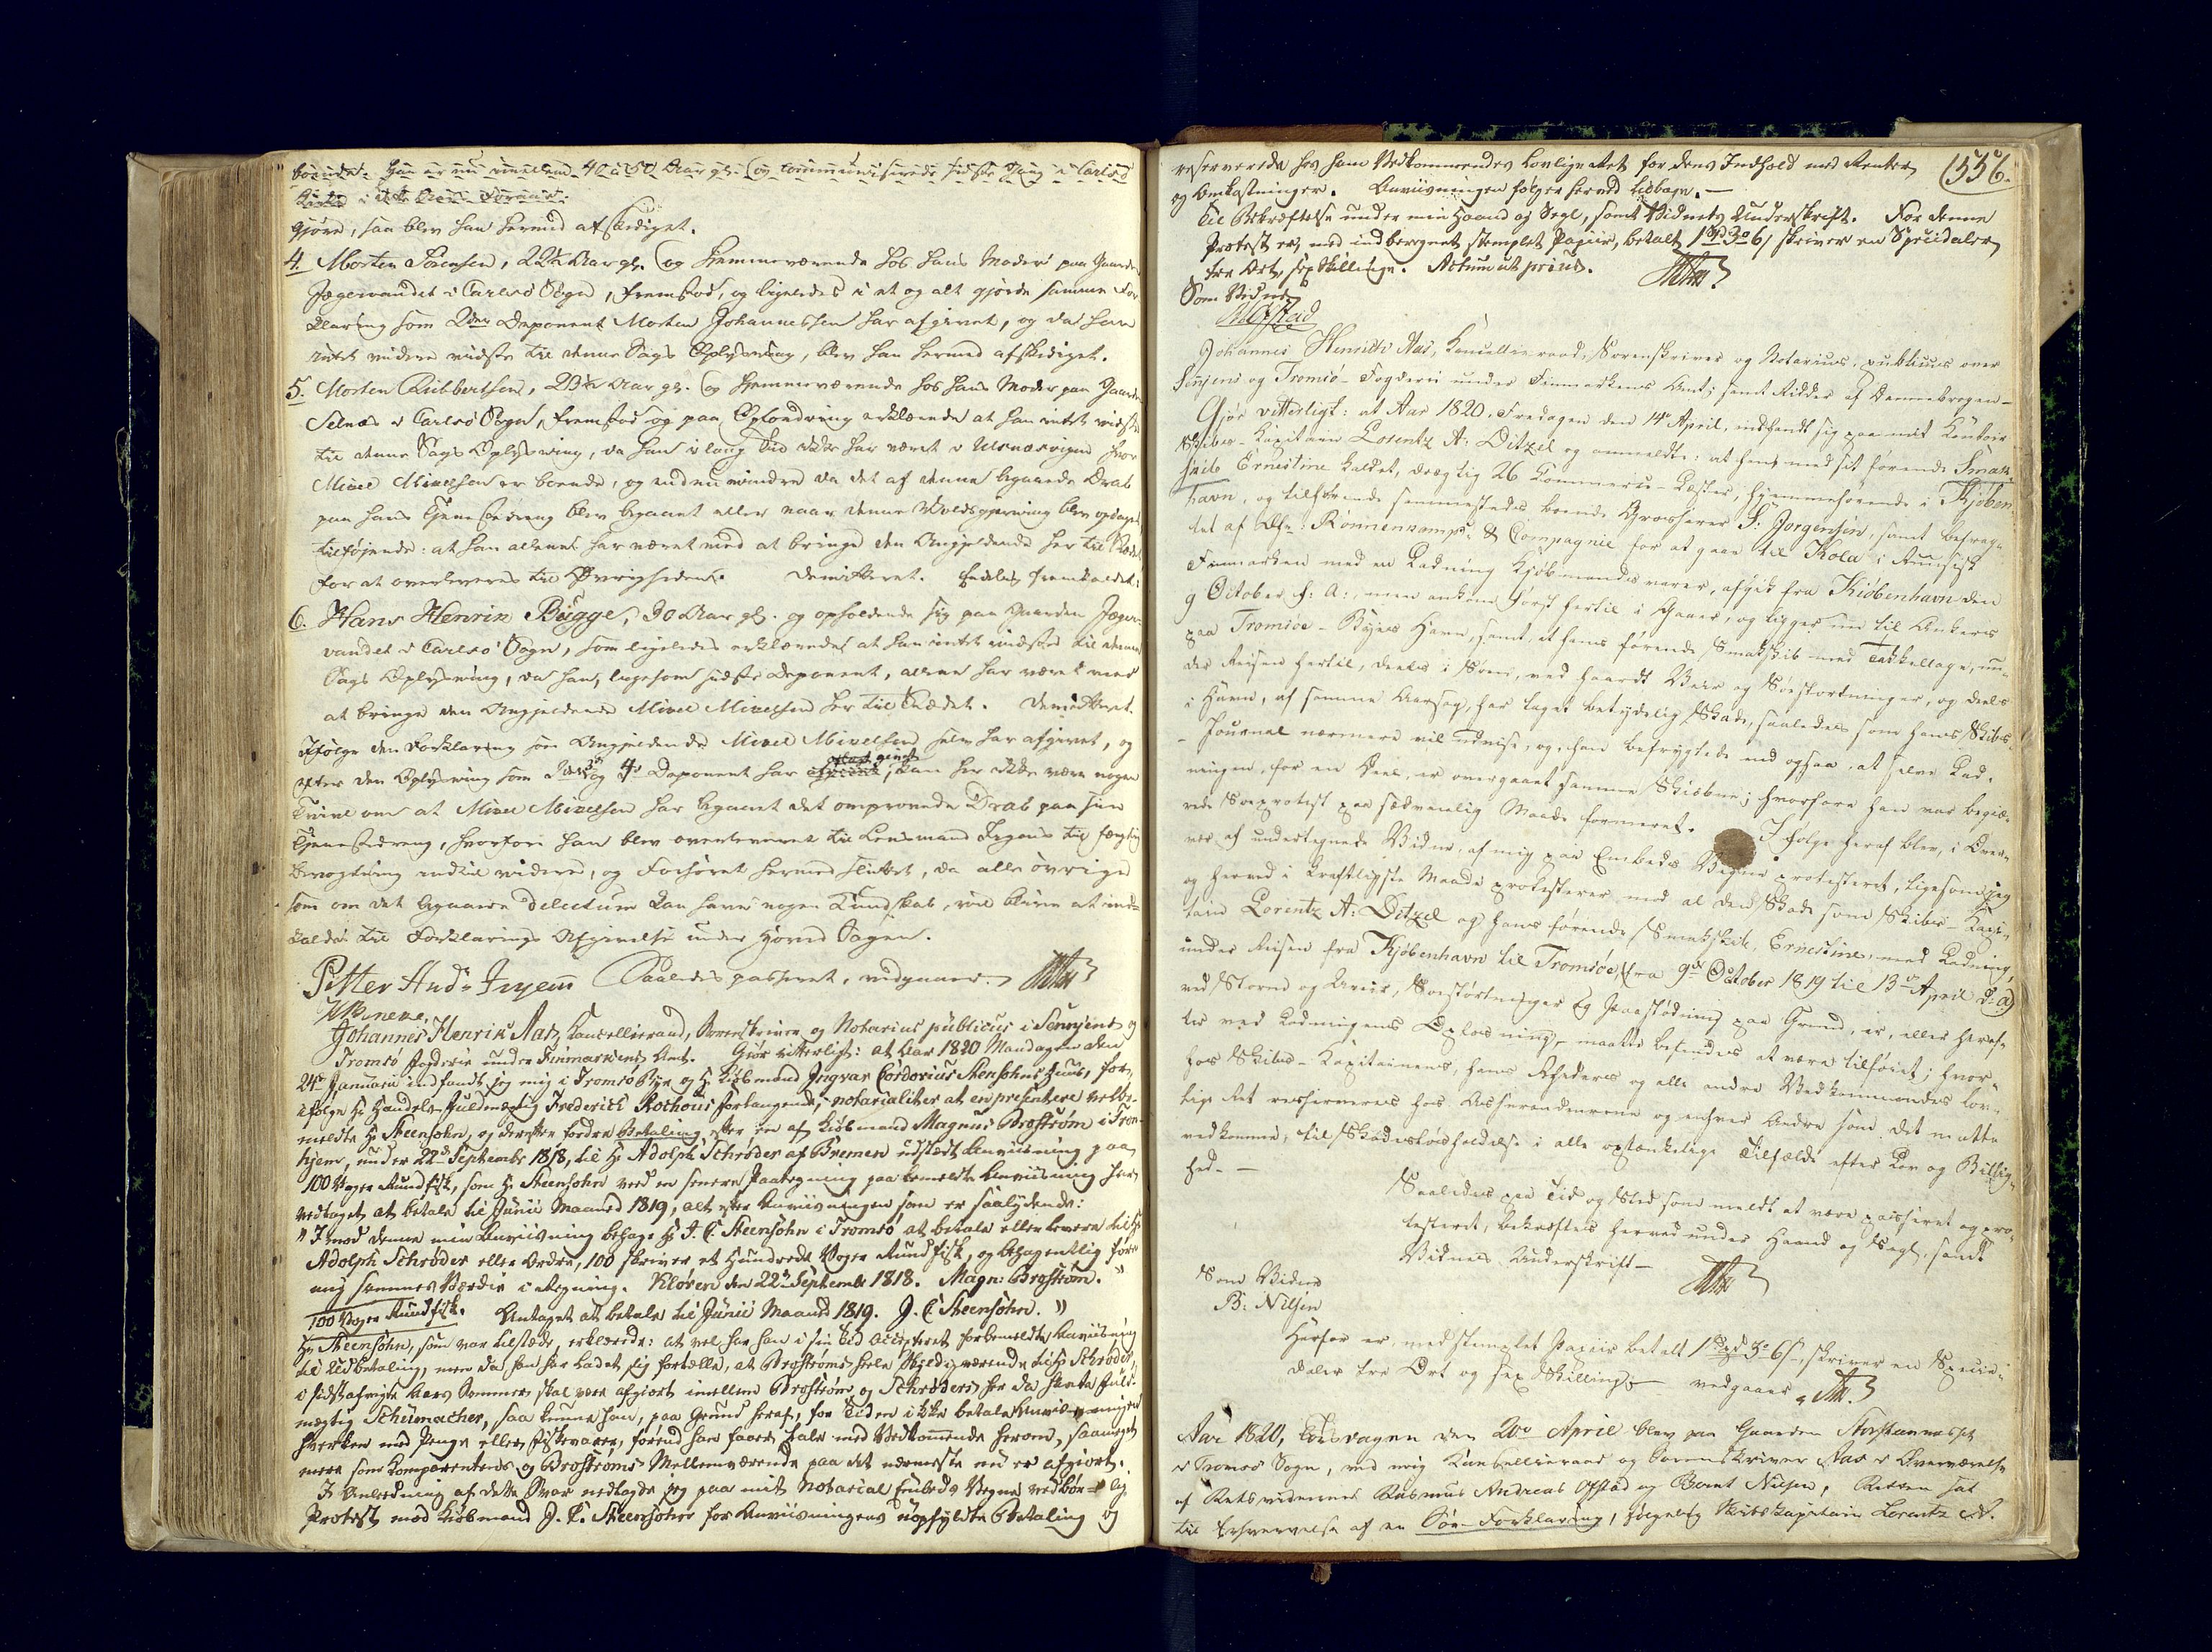 boende. Han er nu imellem 40 a 50 Aar gl. og communiserede sidste Gang i Carlsö
Kirke i dette Aars Foraar.
gjöre, saa blev han hermed afskediget.
4. Morten Sörensen, 22 1/2 Aar gl. og hjemmeværende hos hans Moder paa Gaarden
Jægervandet i Carlsö Sogn, fremstod, og ligeledes i et og alt gjörde samme For
klaring som 2den Deponent Morten Johannessen har afgivet, og da han
intet videre vidste til denne Sags Oplysning, blev han hermed afskediget.
5. Morten Rubbertsen, 23 1/2 Aar gl. og hjemmeværende hos hans Moder paa Gaarden
Selnæs i Carlsö Sogn, fremstod og paa Opfordring erklærede at han intet vidste
til denne Sags Oplysning, da han i lang Tid ikke har været i Ulsnæsvigen hvor
Mikel Mikelsen er boende, og endnu mindre da det af denne begaaede Drab
paa hans Tjenestedreng blev begaaet eller naar denne Voldsgjerning blev opdaget
tilföjende: at han allene har været med at bringe den Angjeldende her til Stædet
for at overleveres til Övrigheden. Demitteret. Endelig fremkaldet:
6. Hans Henrik Bügge, 30 Aar gl. og opholdende sig paa Gaarden Jæger
vandet i Carlsö Sogn, som ligeledes erklærede at han intet vidste til denne
Sags Oplysning, da han, ligesom sidste Deponent, allene har været med
at bringe den Angjeldende Mikel Mikelsen her til Stædet. Demitteret.
Ifölge den Forklaring som Angjeldende Mikel Mikelsen selv har afgivet, og
efter den Oplysning som 2den og 4de Deponent har afgivet, kan her ikke være nogen
Tvivl om at Mikel Mikelsen har begaaet det omprovede Drab paa sin
Tjenestedreng, hvorfor han blev overleveret til Lensmand Irgens til fængslig
Bevogtning indtil videre, og Forhöret hermed sluttet, da alle övrige
som om det begaaede delictum kan have nogen Kundskab, vil blive at ind-
kalde til Forklarings Afgivelse under Hoved Sagen.
Petter And: Irgens Saaledes passeret, vidgaaer. Aas
Johannes Henrik Aas, Kancellieraad, Sorenskriver og Notarius publicus i Senniens og
Tromsö Fogderie under Finmarkens Amt. Gjör vitterligt: at Aar 1820 Mandagen den
24de Januarii indfandt jeg mig i Tromsö Bye og Hr Kiöbmand Ingvar Cordovius Steensohns Huus, for,
ifölge Hr Handels-Fuldmægtig Frederich Rothous Forlangende, notarialiter at en presentere velbe-
meldte Hr Steensohn, og derefter fordre Betaling efter en af Kiöbmand Magnus Broström i Tron-
hjem, under 22de Septembr 1818, til Hr Adolph Schröder af Bremen udstædt Anviisning paa
100 Voger Rundfisk, som Hr Steensohn ved en senere Paategning paa bemeldte Anviisning har
vedtaget at betale til Junii Maaned 1819, alt efter Anviisningen som er saalydende:
"Imod denne min Anviisning behage Hr J. C. Steensohn i Tromsö at betale eller levere til Hr
Adolph Schröder eller Ordre, 100 skriver et Hundrede Voger Rundfisk, og behagentlig före
mig sammes Værdie i Regning. Kloven den 22de Septembr 1818. Magn: Broström."
100 Voger Rundfisk. Antaget at betale til Junii Maaned 1819. J. C. Steensohn."
Hr Steensohn, som var tilstæde, erklærede: at vel har han i sin Tid accepteret forbemeldte Anviisning
til Udbetaling, men da han har ladet sig fortælle, at Broströms hele Skyldigværende til Hr Schröder,
i sidstafvigte Aars Sommer skal være afgiort imellem Broström og Schröders her da havte Fuld-
mægtig Schumacher, saa kunne han, paa Grund heraf, for Tiden ikke betale Anviisningen
hverken med Penge eller Fiskevarer, förend han faaer Tale med Vedkommende herom, saameget
mere som Komparentens og Broströms Mellemværende paa det nærmeste nu er afgiort.
I Anledning af dette Svar nedlagde jeg paa mit Notarial Embeds Vegne vedbör-lig
Protest mod Kiöbmand J. C. Steensohn for Anviisningens uopfyldte Betaling og
556.
reserverede hos ham Vedkommendes lovlige Ret for dens Indhold med Renter
og Omkostninger. Anviisningen fölger herved tilbage. —
Til Bekræftelse under min Haand og Segl, samt Vidnets Underskrift. For denne
Protest er, med indberegnet stemplet Papiir, betalt 1 Spd 3 o 6 s skriver en Speciedaler
tre Ort, sex Skilling. Actum ut prius. Aas
Som Vidne
Johannes Henrich Aas, Kancellieraad, Sorenskriver og Notarius publicus over
Senjens og Tromsö-Fogderie under Finmarkens Amt; samt Ridder af Dannebrogen —
Gjör vitterligt: at Aar 1820, Fredagen den 14de April, indfandt sig paa mit Kontoir
Skibs-Kapitain Lorentz A: Ditzel og anmeldte: at hans med sit förende Smak
skib Ernestine kaldet, drægtig 26 Kommerce-Læster, hjemmehörende i Kjöben
havn, og tilhörende sammestæds boende Grosserer S: Jorgensen, samt befrag-
tet af Dhr: Rönnenkamp & Compagnie for at gaae til Kola i Russisk
Finmarken med en Ladning Kjöbmandsvarer, afgik fra Kiöbenhavn den
9 October f: A:, men ankom först hertil i Gaar, og ligger nu til Ankers
paa Tromsöe-Byes Havn, samt, at hans förende Smakskib med Takkellage, un-
der Reisen hertil, deels i Söen, ved haardt Veir og Söestörtninger, og deels
i Havn, af samme Aarsag, har taget betydelig Skade, saaledes som hans Skibs
- Journal nærmere vil udvise, og, han befrygtede end ogsaa, at selve Lad-
ningen, for en Deel, er overgaaet samme Skiæbne; hvorfore han var begiæ-
rende Söeprotest paa sædvanlig Maade formeret. I fölge heraf blev, i Over-
vær af undertegnede Vidne, af mig paa Embeds Vegne protesteret, ligesom jeg
og herved i kraftligste Maade protesterer mod al den Skade som Skibs-Kapi-
tain Lorentz A: Ditzel og hans förende Smakskib, Ernestine, med Ladning,
under Reisen fra Kjöbenhavn til Tromsöe, (fra 9de October 1819 til 13de April d: A:)
ved Storm og Uveir, Söestörtninger og Paastödning paa Grund, er, eller heref-
ter ved Ladningens Oplosning, maatte befindes at være tilföiet; hvor-
hos Skibs-Kapitainens, hans Rhederes og alle andre Vedkommendes lov-
lige Ret reserveres hos Assurandeurerne og enhver Anden som det maatte
vedkomme, til Skadeslösholdelse i alle optænkelige Tilfælde efter Lov og Billig-
hed. —
Saaledes paa Tid og Sted som meldt at være passeret og pro-
testeret, bekræftes herved under Haand og Segl, samt
Vidnes Underskrift — Aas
Som Vidne
B: Nilsen
Herfor er, med stemplet Papiir betalt 1 Spd 3 o 6 s, skriver en Specie-
daler tre Ort og sex Skilling. — vedgaaer Aas.
Aar 1820, Torsdagen den 20de April blev paa Gaarden Storstannesset
i Tromsö Sogn, ved mig Kancellieraad og Sorenskriver Aas i Overværelse
af Retsvidnerne Rasmus Andreas Opstad og Bernt Nilsen, Retten sat
til Erhvervelse af en Söe-Forklaring, fölgelig Skibskapitain Lorentz A.